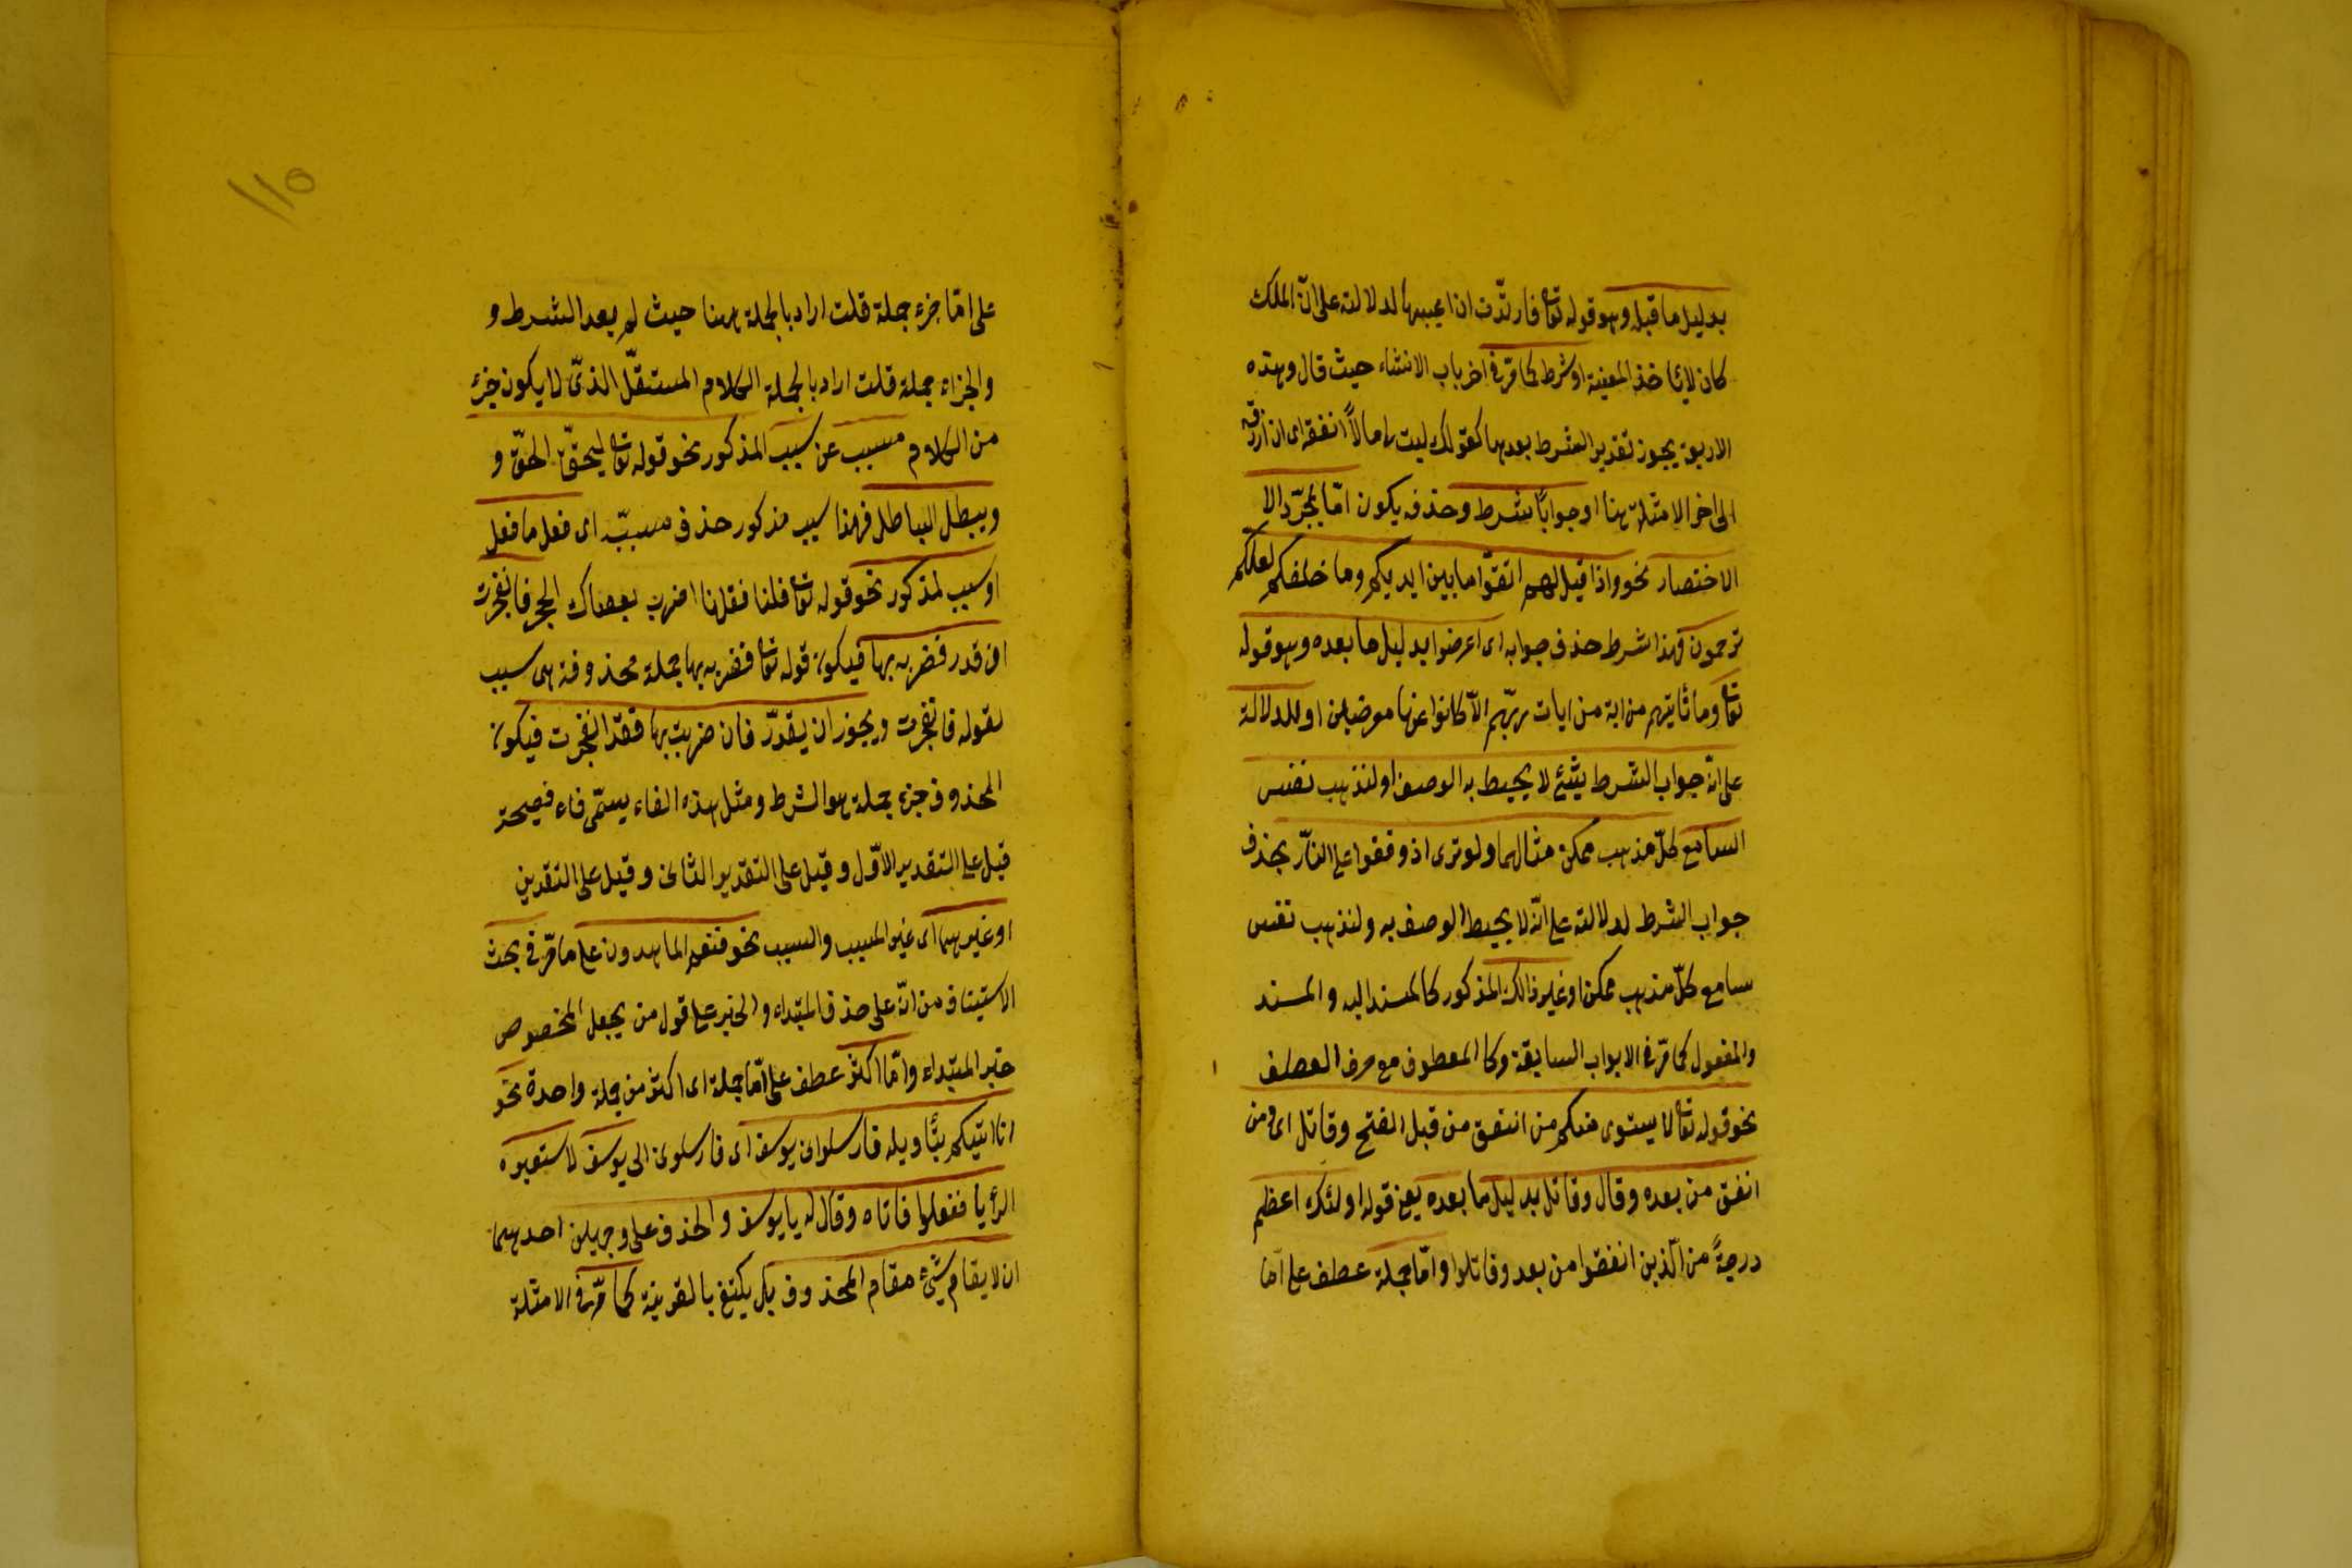 بدليل ما قبله وهو قوله تعا فاردّت ان اعيبها لدلالته على انّ الملك
كان لا يأخذ المعيبة او شرط كما مرّ فى اخر باب الانشاء حيث قال وهذه
الاربعة يجوز تقدير الشرط بعدها كقولك ليت لى مالاً انفقه اى ان ارزقه
الى اخر الامثلة هنا او جواب شرط وحذفه يكون امّا لمجرّد الا
الاختصار نحو واذا قيل لهم اتقوا ما بين ايديكم وما خلفكم لعلكم
ترحمون فهذا شرط حذف جوابه اى اعرضوا بدليل ما بعده وهو قوله
تعا وما تأتيهم من اية من ايات ربّهم الّا كانوا عنها معرضين او للدلالة
على انّ جواب الشرط شئ لا يحيط به الوصف او لتذهب نفس
السامع كلّ مذهب ممكن مثالهما ولو ترى اذ وقفوا على النّار بحذف
جواب الشرط لدلالته على انّه لا يحيط الوصف به ولتذهب نفس
سامع كلّ مذهب ممكن او غير ذالك المذكور كالمسند اليه والمسند
والمفعول كما مرّ فى الابواب السابقة وكا المعطوف مع حرف العطف
نحو قوله تعا لا يستوى منكم من انفق من قبل الفتح وقاتل اى ومن
انفق من بعده وقال وقاتل بدليل ما بعده يعنى قوله اولئك اعظم
درجةً من الّذين انفقوا من بعد وقاتلوا وامّا جملة عطف على امّا
١١٥
على امّا جزء جملة قلت اراد بالجملة ههنا حيث لم يعد الشرط و
والجزاء جملة قلت اراد بالجملة الكلام المستقلّ الذىّ لا يكون جزء
من الكلام مسبب عن سبب المذكور نحو قوله تعا ليحقّ الحقّ و
ويبطل الباطل فهذا سبب مذكور حذف مسببّه اى فعل ما فعل
او سبب لمذكور نحو قوله تعا فلنا فقلنا اضرب بعصاك الحجر فانفجرت
ان قدر فضربه بها فيكون قوله تعا فضربه بها جملة محذوفة هى سبب
لقوله فانفجرت ويجوز ان يقدّر فان ضربت بها فقد انفجرت فيكون
المحذوف جزء جملة هو الشرط ومثل هذه الفاء يسمّى فاء فصيحة
قيل على التقدير الاوّل وقيل على التقدير الثانى وقيل على التقدين
او غيرهما اى غير المسبب والسبب نحو فنعم الماهدون على ما مرّ فى بحث
الاستيناف من انّه على حذف المبتداء والخبر على قول من يجعل المخصوص
خبر المبتداء وامّا اكثر عطف على امّا جملة اى اكثر من جملة واحدة نحو
انا انبئكم بتأويله فارسلون يوسف اى فارسلون الى يوسف لاستعبره
الرأيا ففعلوا فاتاه وقال له يا يوسف والحذف على وجهين احدهما
ان لا يقام شئ مقام المحذوف بل يكتفى بالقرينة كما مرّ فى الامثلة